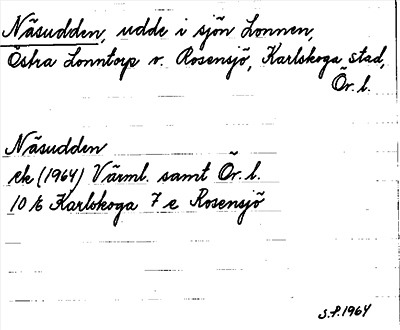 Näsudden, udde i sjön Lonnen,
Östra Lonntorp v. Rosensjö, Karlskoga stad,
Ör. l.
Näsudden
ek (1964) Värml. samt Ör. l.
10 E Karlskoga 7 e Rosensjö
S.P. 1964